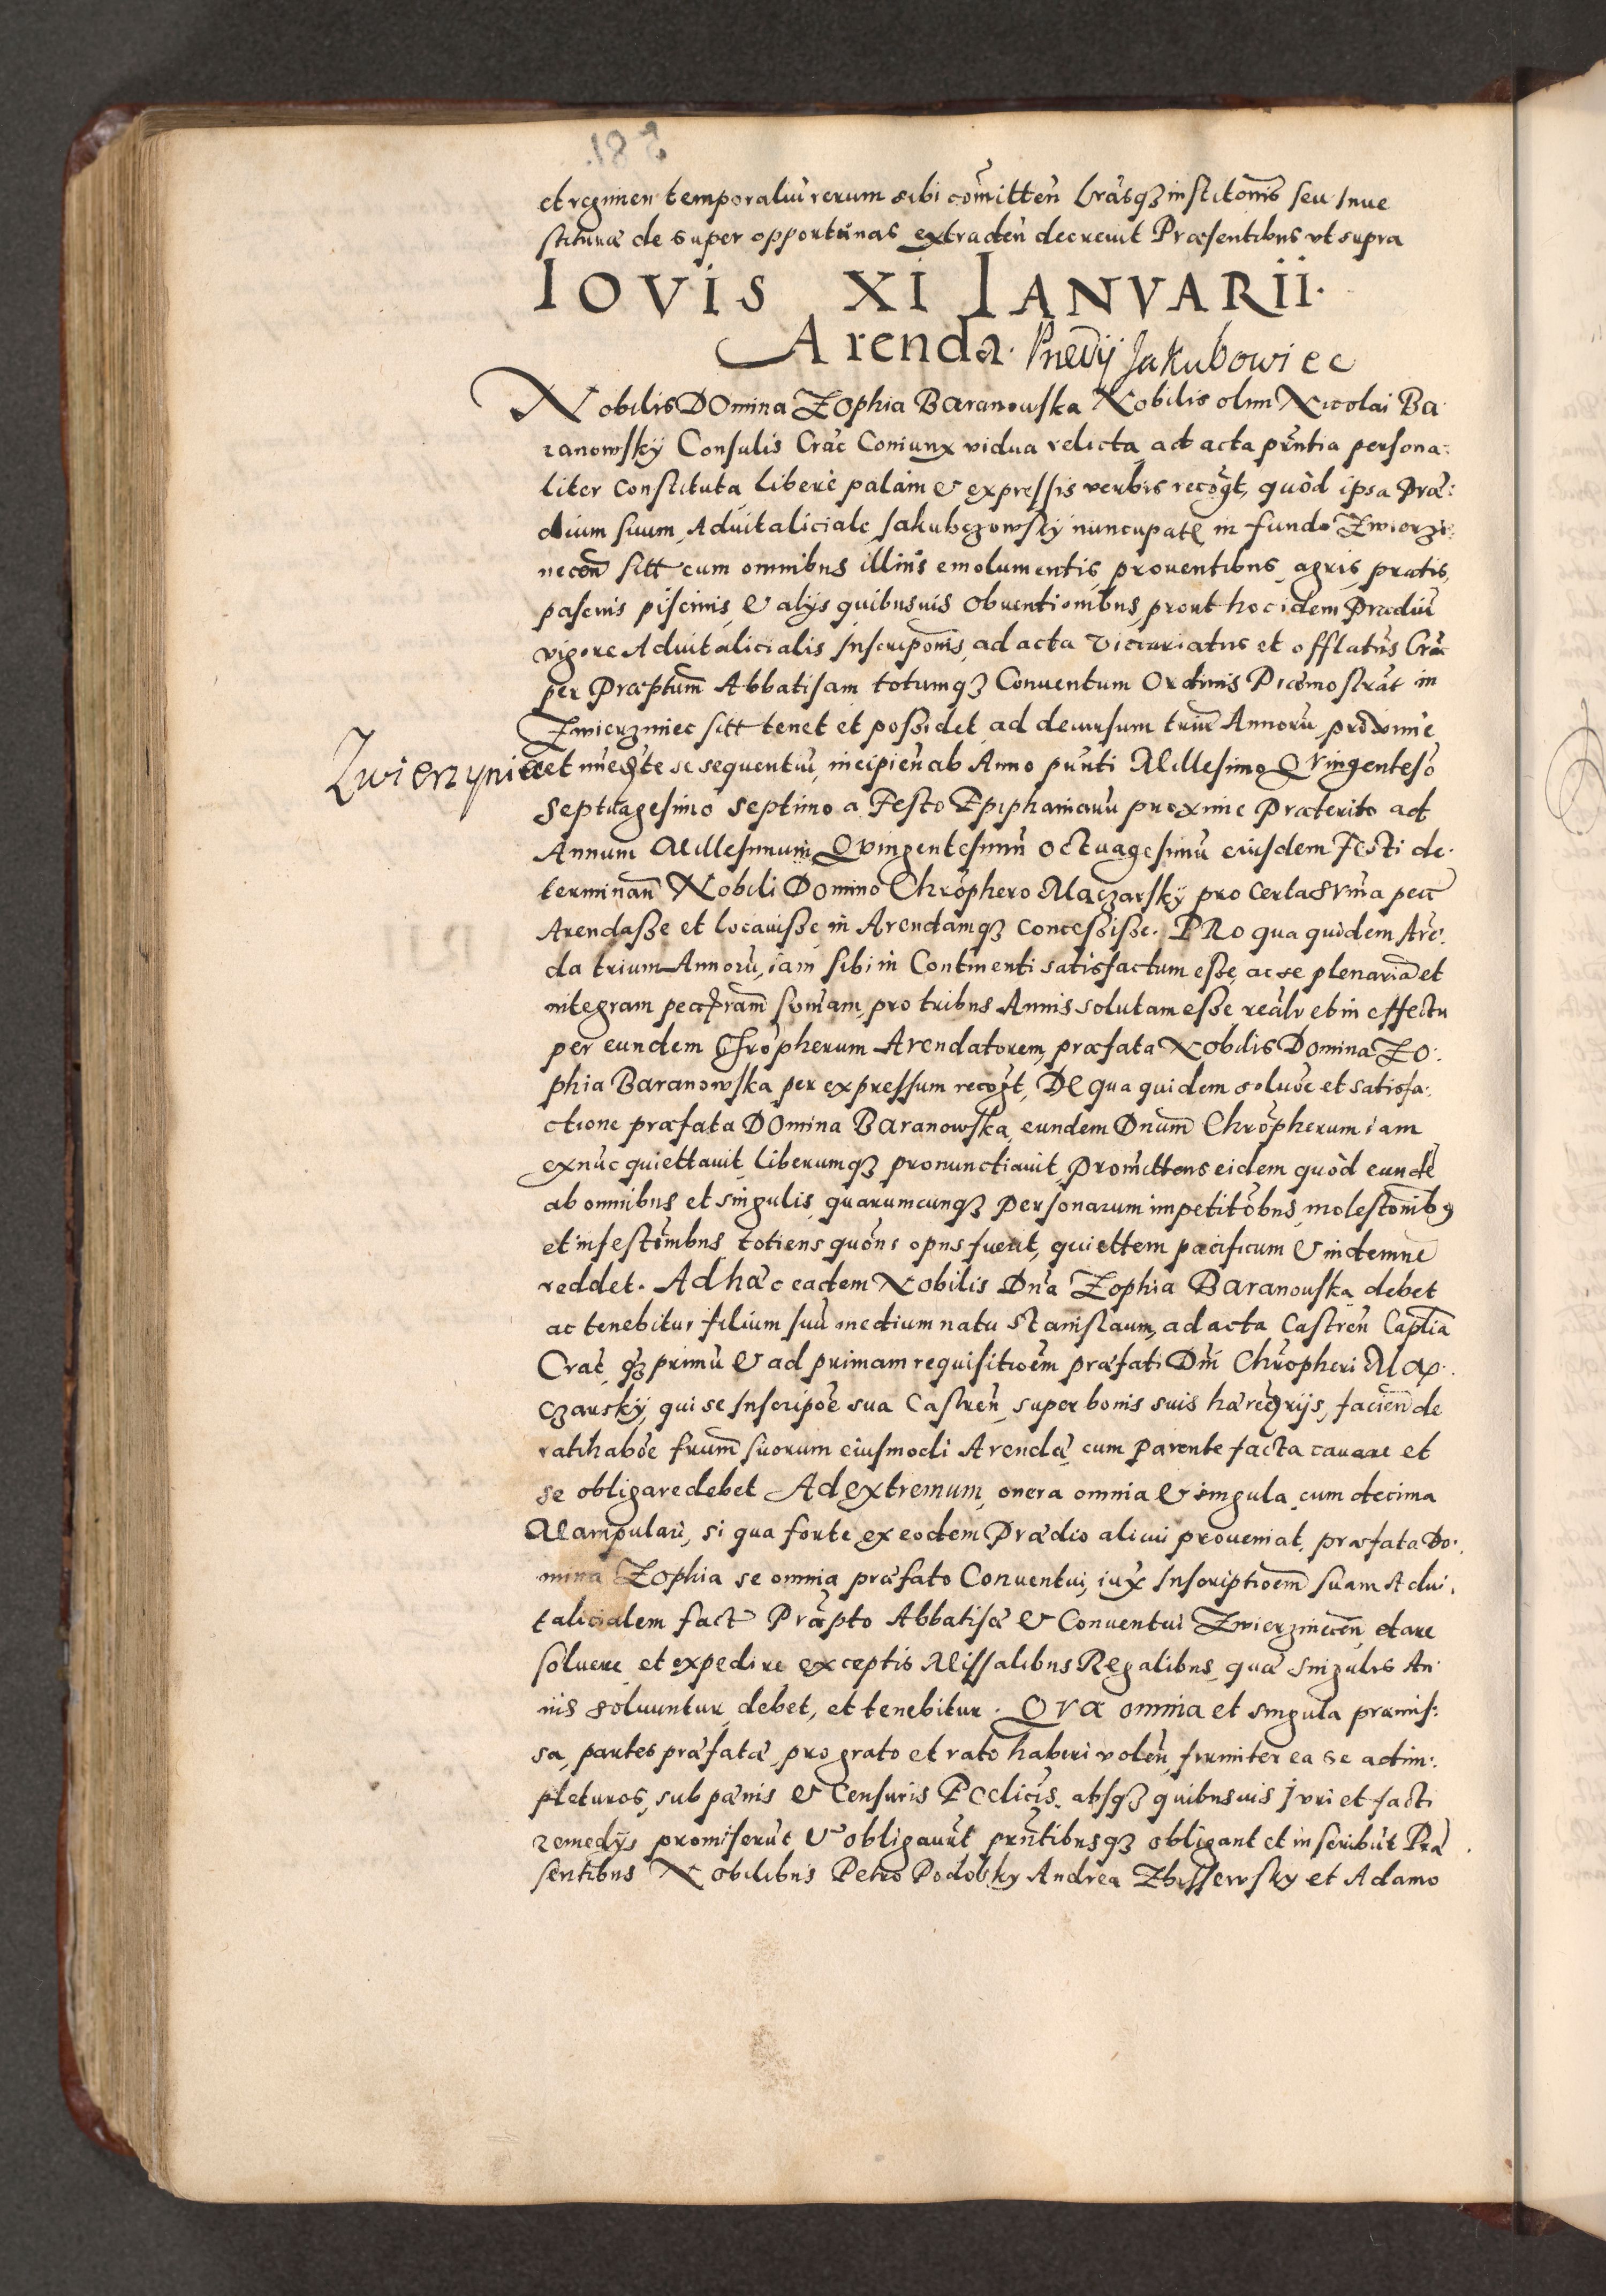 et regimen temporaliū rerum sibi com̄itten̄ lrasq3 institon̄is seu Inue
stituræ de super opportunas extraden̄ decreuit Præsentibus vt supra
IOVIS XI IANVARII.
Arenda. Prædij Jakubowiec
Nobilis DOmina ZOphia Baranowska Nobilis olim Nicolai Ba
ranowsky Consulis Crac̄ Coniunx vidua relicta ad acta pn̄tia persona:
liter constituta liberè palàm & expressis verbis recoḡt, quòd ipsa Præ:
dium suum Aduitaliciale Jakubczowsky nuncupatū in fundo Zwierzi:
necen̄ sitt cum omnibus illius emolumentis, prouentibus, agris, pratis,
pascuis piscinis, & alijs quibusuis obuentionibus, prout hoc idem Prædiū
vigore Aduitalicialis Inscripon̄is, ad acta Vicariatus et offlatus Crac̄
per Præptam̄ Abbatisam totumq3 Conuentum Ordinis Præmostrat̄ in
Zwierziniec sitt tenet et possidet, ad decursum triū Annorū proxime
Zwierzyniec
et im̄ediate se sequentiū, incipien̄ ab Anno pn̄ti Millesimo Qvingentesō
Septuagesimo septimo a Festo Epiphaniarū proxime Præterito ad
Annum Millesimum Qvingentesimū octuagesimū eiusdem Festi de.
terminan̄ Nobili Domino Chrōphero Maczarsky pro certa sum̄a pecc̄
Arendasse et locauisse, in Arendamq3 concessisse. PRo qua quidem Arē.
da trium Annorū, iam sibi in Continenti satisfactum esse, ac se plenariā et
integram peccriam̄ sum̄am, pro tribus Annis solutam esse realr̄ et in effectu
per eundem Chrōpherum Arendatorem, præfata Nobilis Domina Zo:
phia Baranowska per expressum recoḡt, DE qua quidem soluōe et satisfa:
ctione præfata DOmina Baranowska, eundem Dnum̄ Chrōpherum iam
exnūc quiettauit, liberumq3 pronunctiauit, Promittens eidem quòd eundē
ab omnibus et singulis, quarumcunq3 Personarum impetitōbus, molestonib9
et infestōnibus, totiens quotiēs opus fuerit, quiettem pacificum & indemnē
reddet. Ad hæc eadem Nobilis Dn̄a Zophia Baranouska debet
ac tenebitur filium suū medium natu Stanislaum, ad acta Castren̄ Captīa
Crac̄ q3 primū & ad primam requisitioēm præfati Dn̄i Chrōpheri Ma:
czarsky, qui se Inscripōe sua Castren̄, super bonis suis hæredrijs, facien̄ de
ratihabōe frum̄ suorum eiusmodi Arendæ, cum parente facta cauare et
se obligare debet Ad extremum, onera omnia & singula, cum decima
Mampulari, si qua forte ex eodem Prædio alicui proueniat, præfata Do:
mina Zophia se omnia præfato Conuentui, iux̄ Inscriptioēm suam Adui:
talicialem fact̄ Præpto Abbatisæ & Conuentui Zwierzinecen̄ dare
soluere, et expedire, exceptis Missalibus Regalibus, quæ singulis An
nis soluuntur, debet, et tenebitur. QVæ omnia et singula præmis:
sa, partes præfatæ, pro grato et rato haberi volen̄, firmiter ea se adim:
pleturos, sub pænis & Censuris Ecclicis, absq3 quibusuis Juri et facti
remedijs promiserūt & obligaur̄t pn̄tibusq3 obligant et inscribūt Præ
sentibus Nobilibus Petro Podolsky Andrea Zbissewsky et Adamo